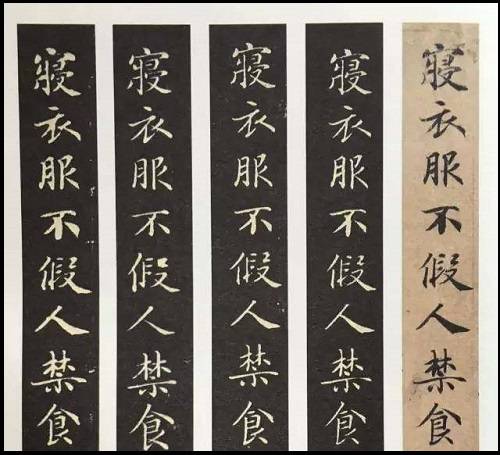 寢衣服不假人禁食
寢衣服不假人禁食
寢衣服不假人禁食
寢衣服不假人禁食
寢衣服不假人禁食